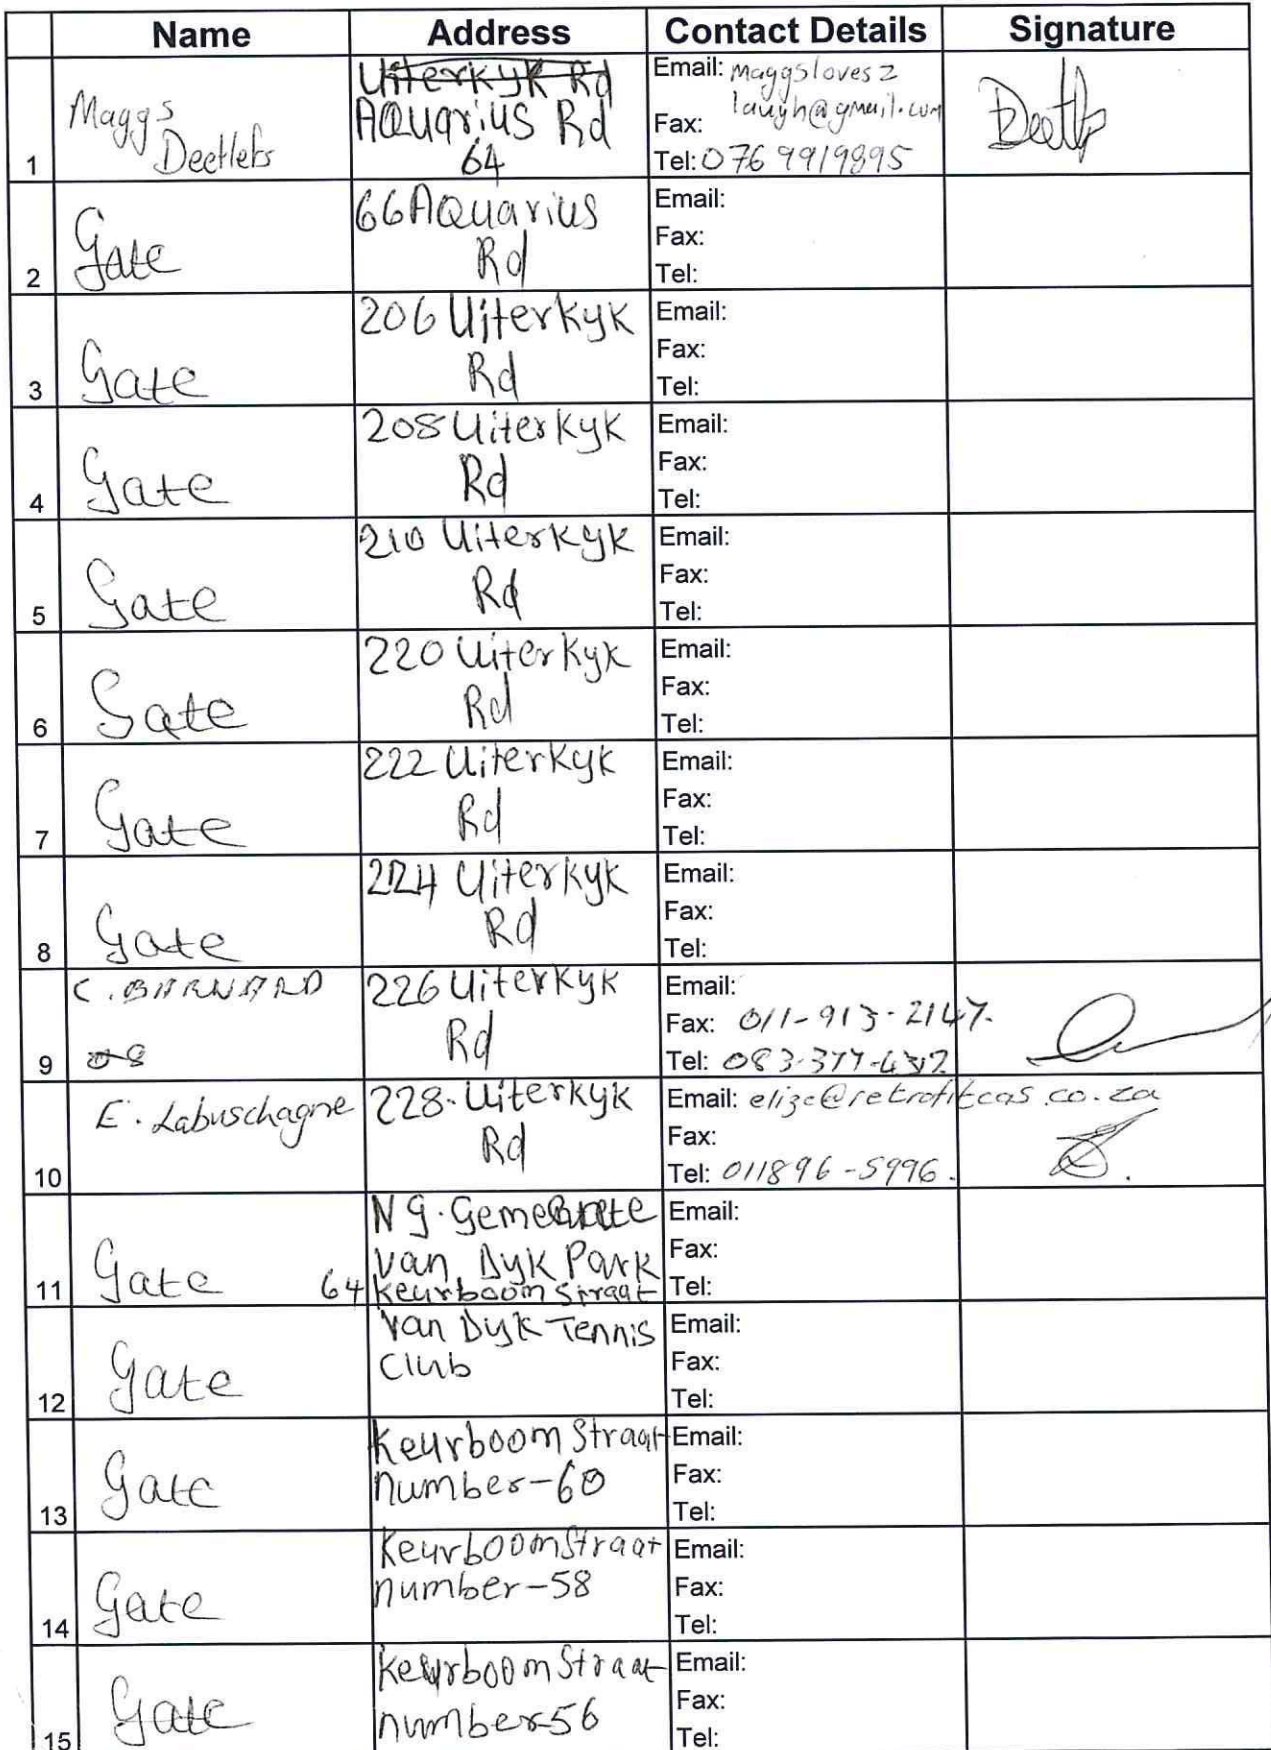 Name Address Contact Details Signature
1 Maggs Deetlefs
Uiterkyk Rd
Aquarius Rd
64
Email: maggsloves2
laugh@gmail.com
Fax:
Tel: 076 9919895
2 Gate
66 Aquarius
Rd
Email:
Fax:
Tel:
3 Gate
206 Uiterkyk
Rd
Email:
Fax:
Tel:
4 Gate
208 Uiterkyk
Rd
Email:
Fax:
Tel:
5 Gate
210 Uiterkyk
Rd
Email:
Fax:
Tel:
6 Gate
220 Uiterkyk
Rd
Email:
Fax:
Tel:
7 Gate
222 Uiterkyk
Rd
Email:
Fax:
Tel:
8 Gate
224 Uiterkyk
Rd
Email:
Fax:
Tel:
9 C. BARNARD
226 Uiterkyk
Rd
Email:
Fax: 011-913-2147.
Tel:
10 E. Labuschagne
228. Uiterkyk
Rd
Email: elize@retrofitcas.co.za
Fax:
Tel: 011896-5996.
11 Gate
N g. Gemeente
van Dyk Park
64 Keurboom straat
Email:
Fax:
Tel:
12 Gate
Van Dyk Tennis
Club
Email:
Fax:
Tel:
13 Gate
Keurboom Straat
number-60
Email:
Fax:
Tel:
14 Gate
Keurboom Straat
number-58
Email:
Fax:
Tel:
15 Gate
Keurboom Straat
number-56
Email:
Fax:
Tel: